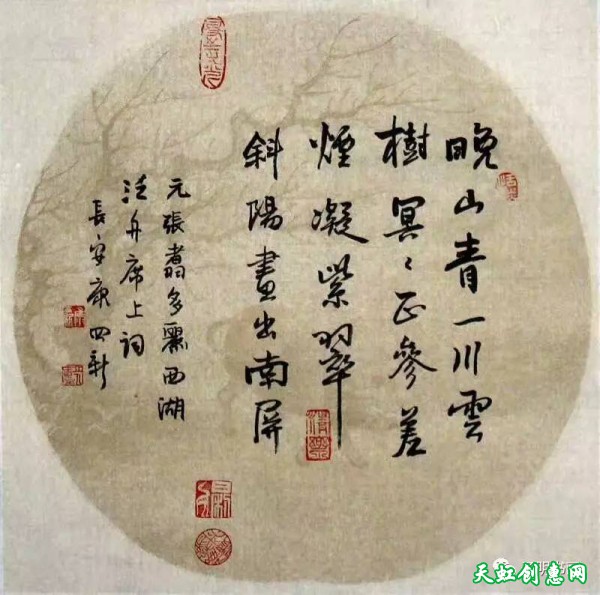 晚山青一川雲
樹冥〻正參差
煙凝紫翠
斜陽畫出南屏
元張翥多麗西湖
泛舟席上詞
長安康四新
天虹创惠网